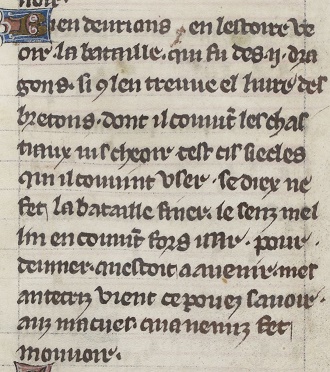 Bien deurions en lestoire ve
oir. la bataille. qui fu des .ij. dra
gons. si 9 len treuue el liure des
bretons. dont il couuīt les chas
tiaux ius cheoir. cest cis siecles
Qui il couuint vser. se diex ne
fet la bataille finer. le senz mel
lin en couuīt fors issir. pour
deuiner. questoit a auenir. mes
antecriz vient ce pouez sauoir.
aus macues. qua nemis fet
mouuoir.